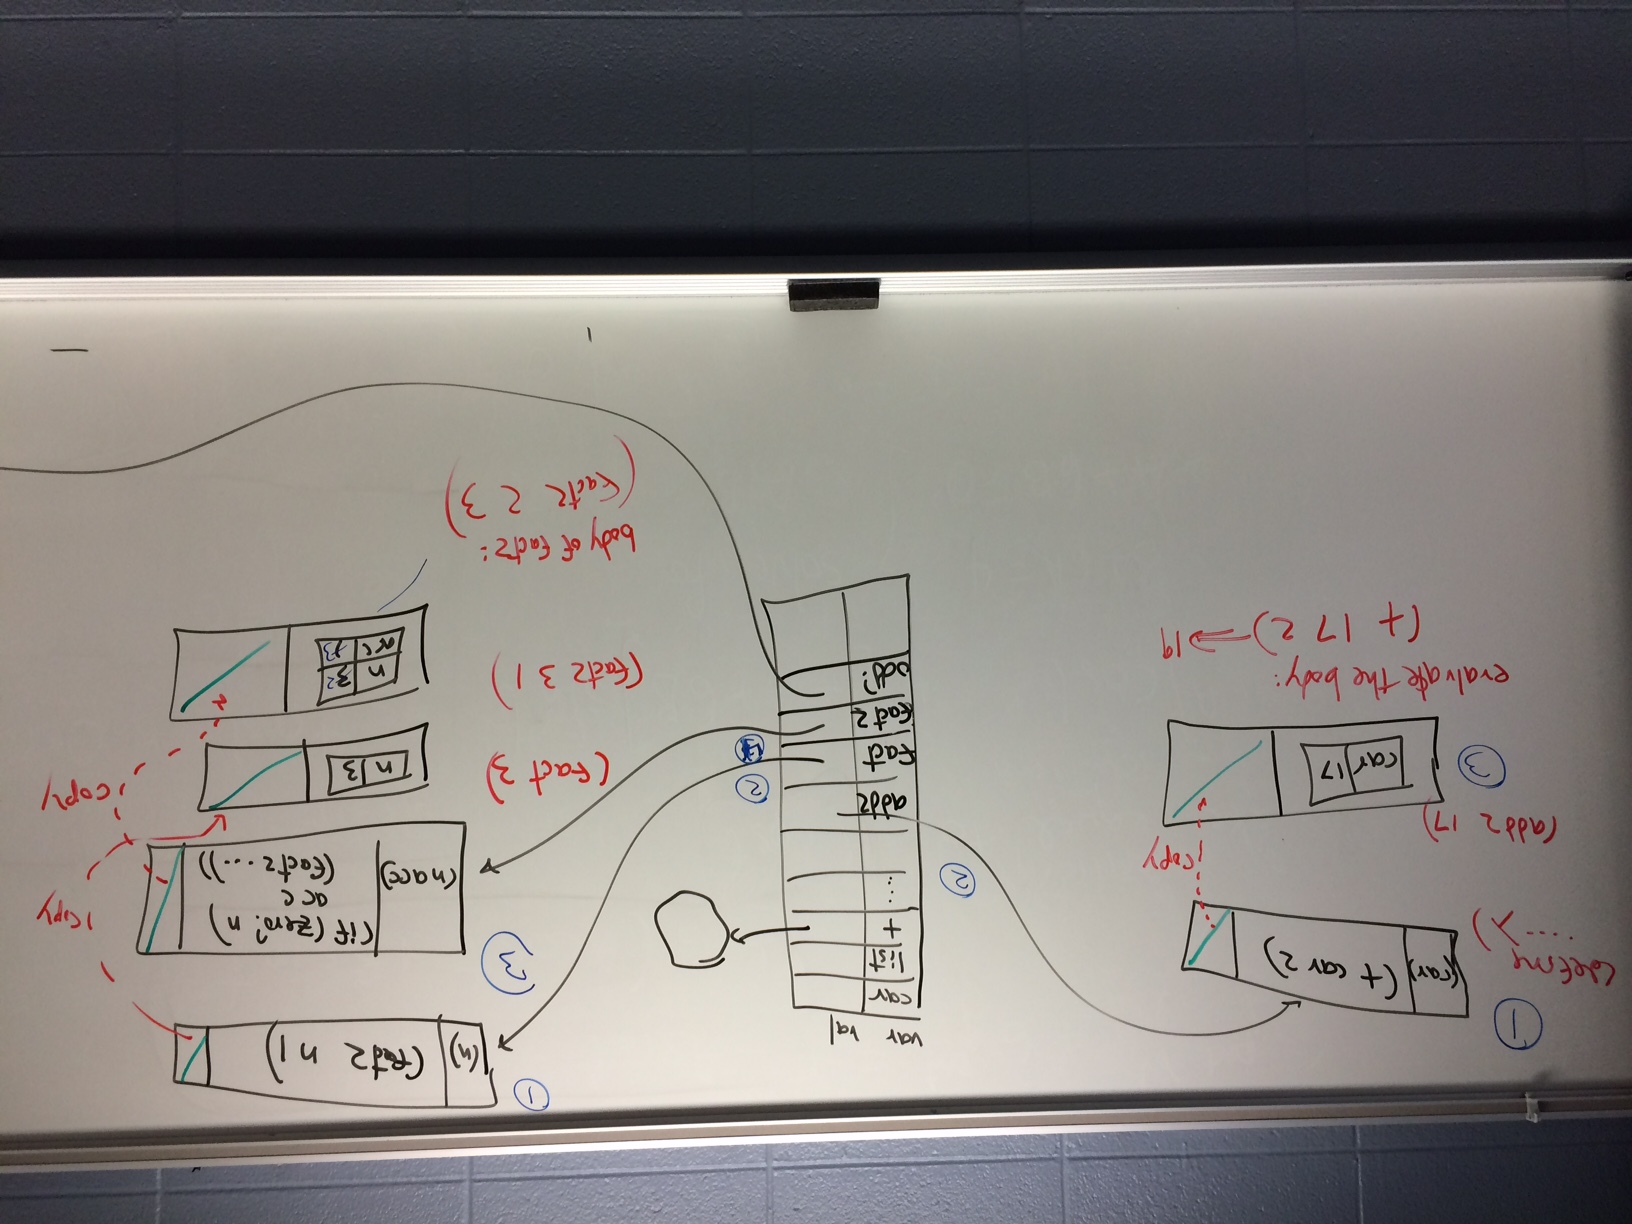 ①
(define
....λ)
(car)
(+ car 2)
copy
(add2 17)
③
car 17
evaluate the body:
(+ 17 2) → 19
var val
car
list
+
....
②
add2
fact
fact2
odd?
②
①
(n)
(fact2 n 1)
③
(n acc)
(if (zero? n)
acc
(fact2 ....))
copy
copy
(fact 3)
n 3
(fact2 3 1)
n 3 2
acc 3
body of fact2:
(fact2 2 3)